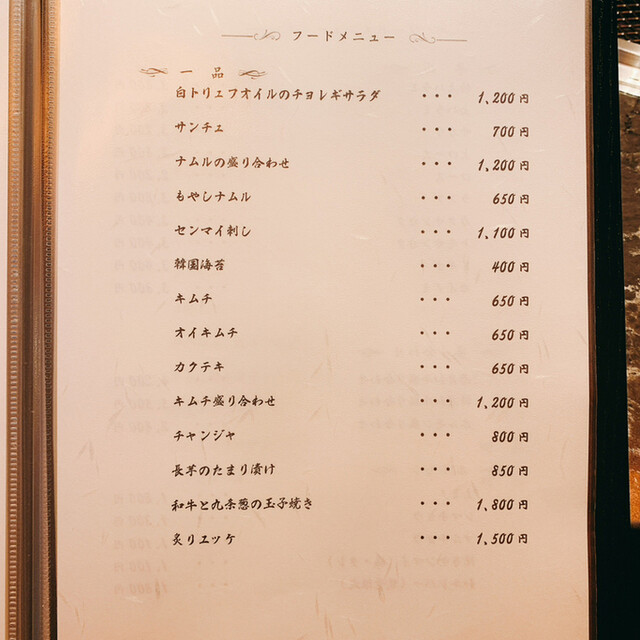 フードメニュー
一品
白トリュフオイルのチョレギサラダ ・・・ 1,200円
サンチュ ・・・ 700円
ナムルの盛り合わせ ・・・ 1,200円
もやしナムル ・・・ 650円
センマイ刺し ・・・ 1,100円
韓国海苔 ・・・ 400円
キムチ ・・・ 650円
オイキムチ ・・・ 650円
カクテキ ・・・ 650円
キムチ盛り合わせ ・・・ 1,200円
チャンジャ ・・・ 800円
長芋のたまり漬け ・・・ 850円
和牛と九条葱の玉子焼き ・・・ 1,800円
炙りユッケ ・・・ 1,500円